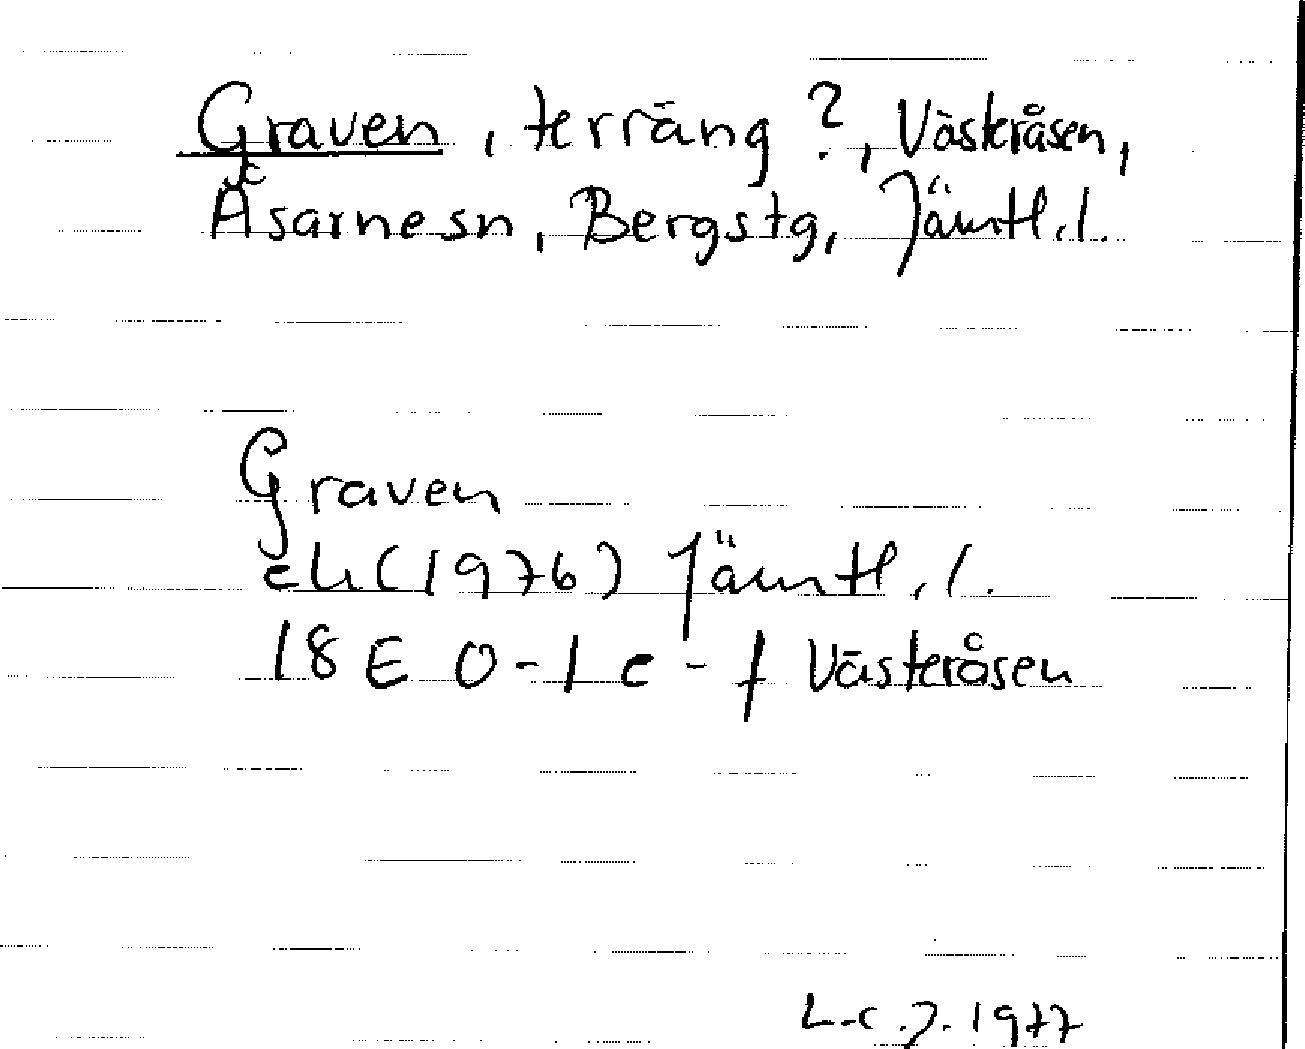 Graven, terräng?, Västeråsen,
Åsarnesn, Bergstg, Jämtl.l.
Graven
ek(1976) Jämtl.l.
18E 0-1 e-f Västeråsen
L.c.J. 1977